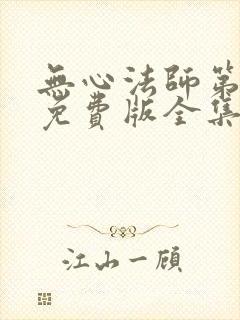 無心法師第
免費版全集
江山一顧